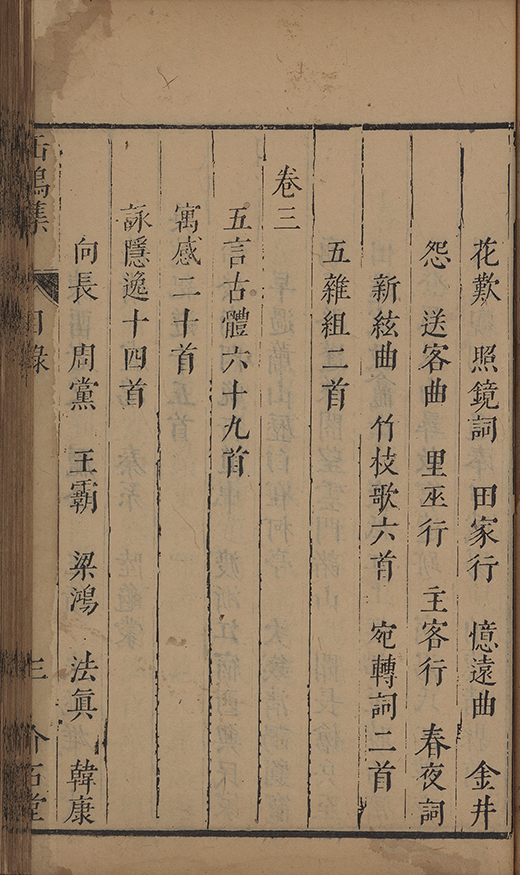 花歎 照鏡詞 田家行 憶遠曲 金井
怨 送客曲 里巫行 主客行 春夜詞
新絃曲 竹枝歌六首 宛轉詞二首
五雜組二首
卷三
五言古體六十九首
寓感二十首
詠隱逸十四首
向長 周黨 王霸 梁鴻 法眞 韓康
缶鳴集 目錄 三 介石堂